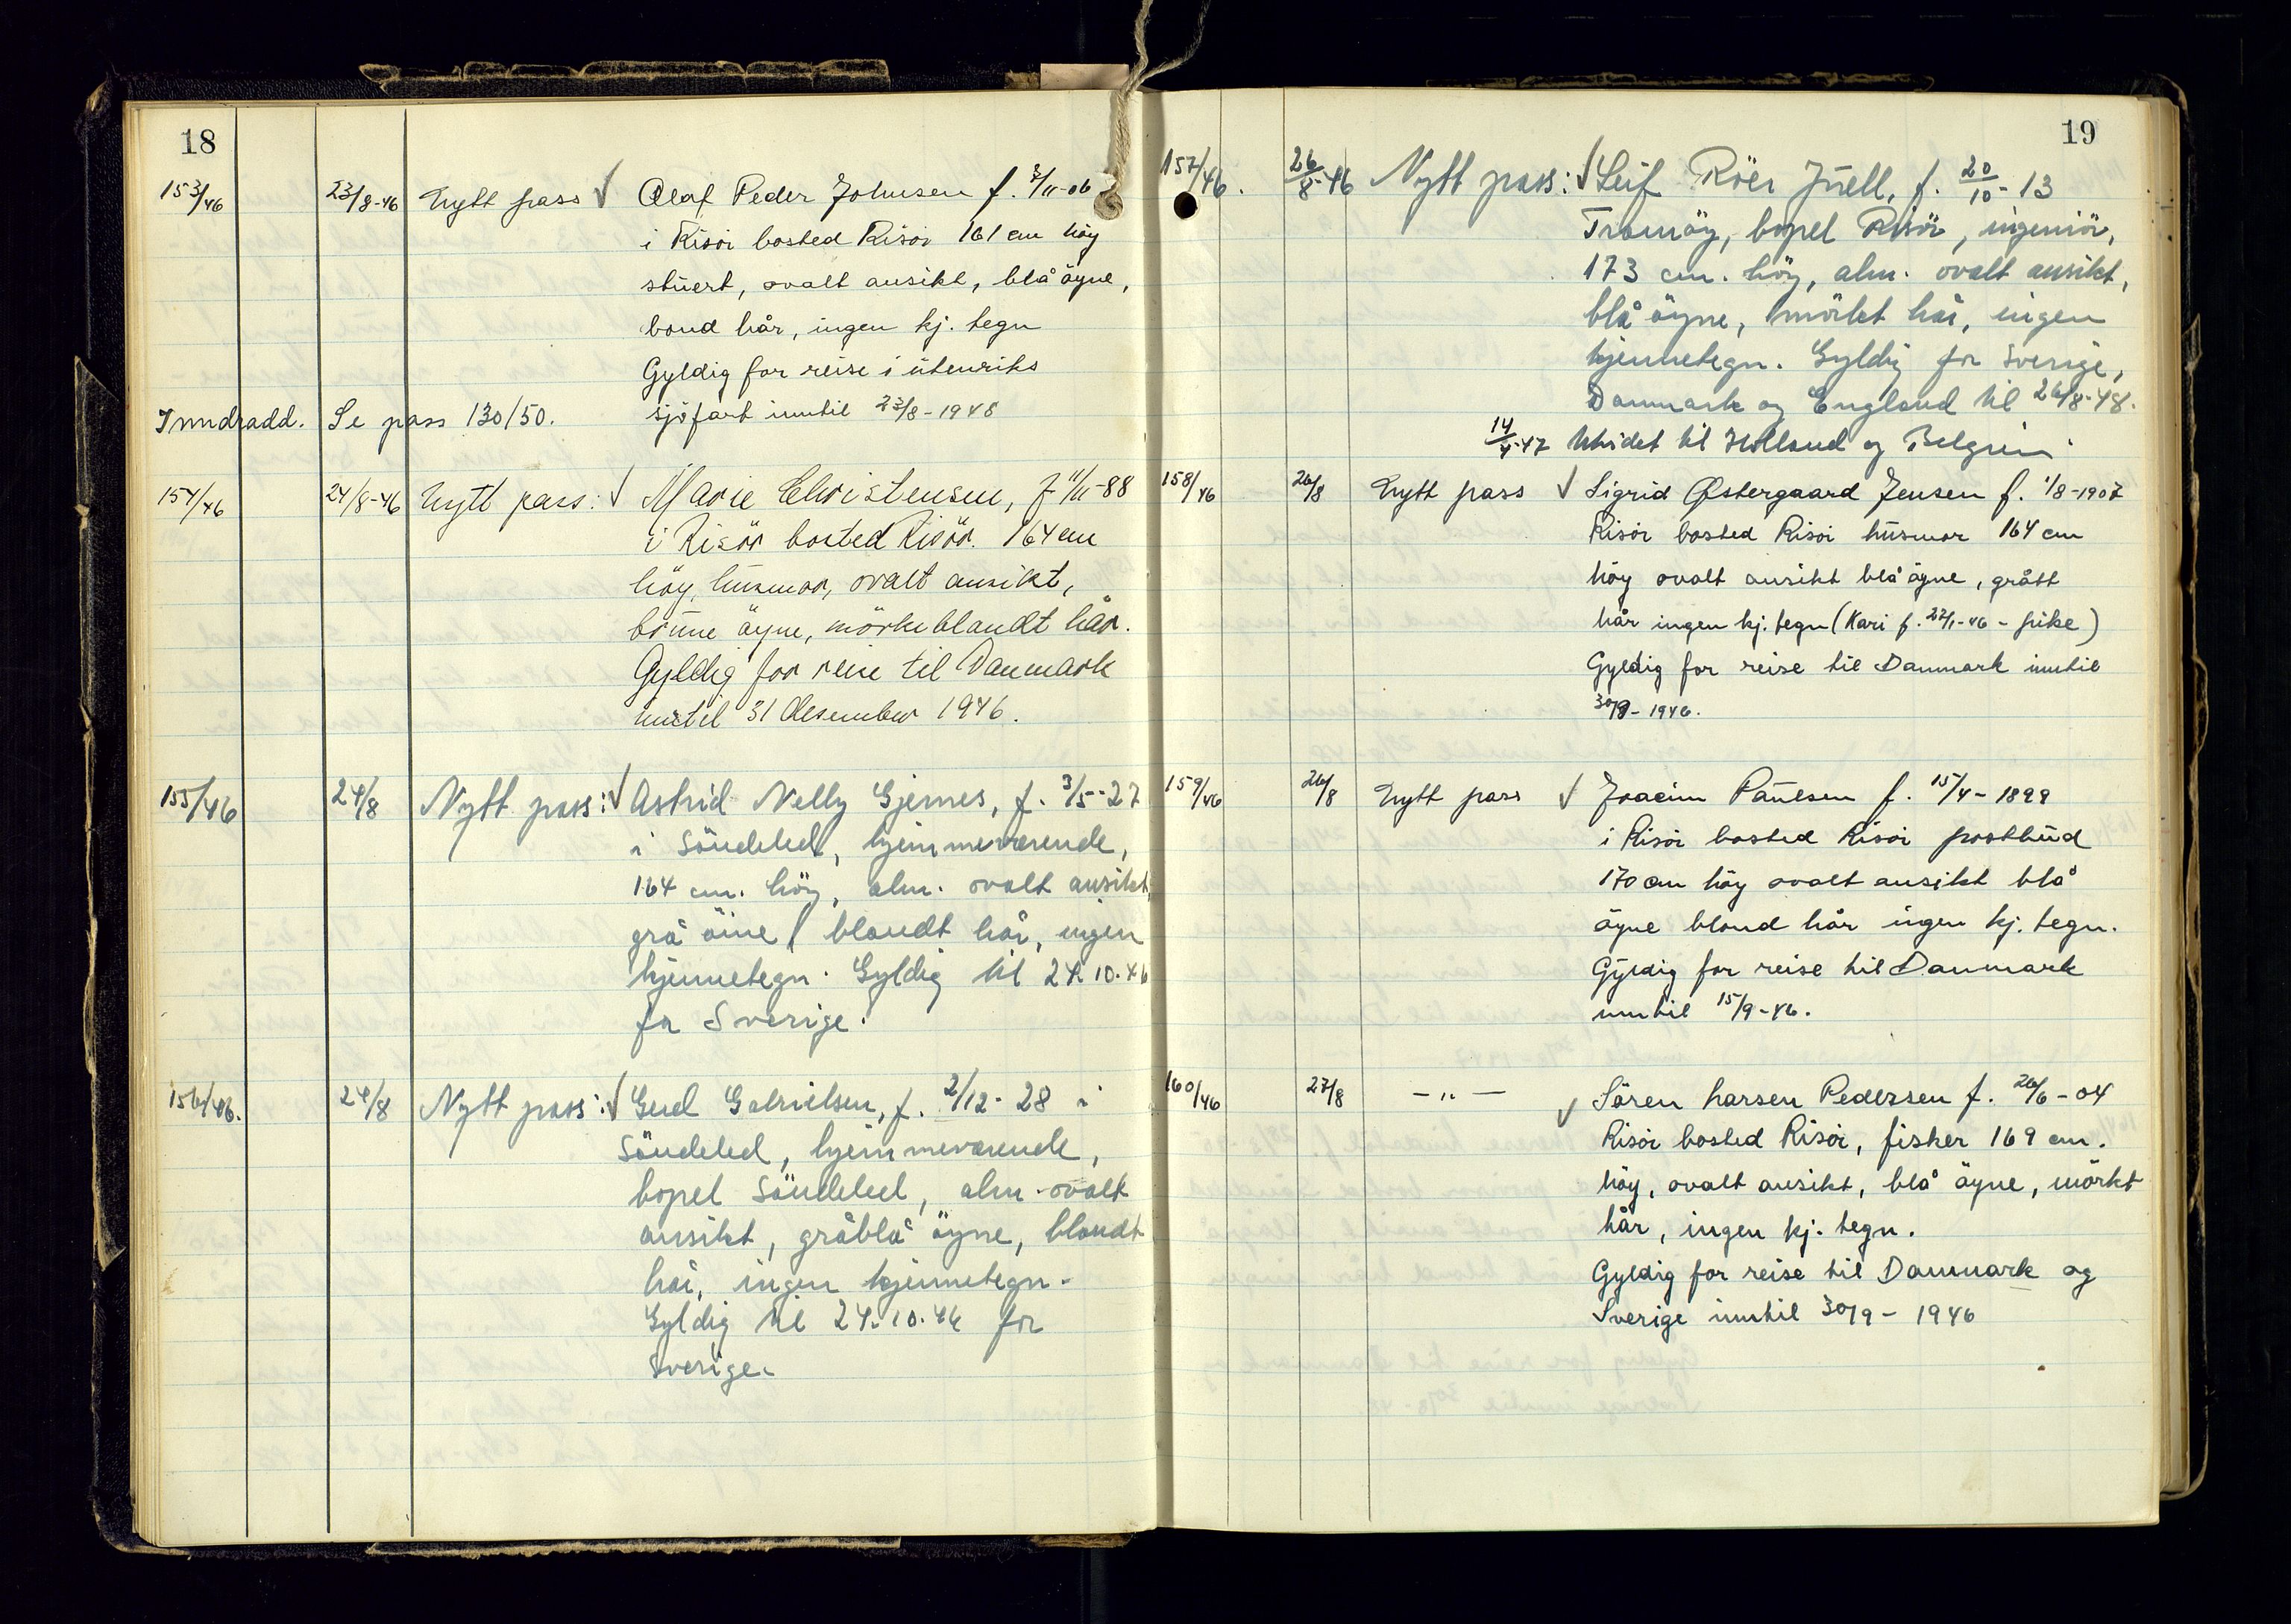 18
153/46 23/8-46 Nytt pass √ Olaf Peder Johnsen f. 3/11-06
i Risör bosted Risör 161 cm höy
stuert, ovalt ansikt, blå öyne,
bond hår, ingen kj. tegn
Gyldig for reise i utenriks
sjöfart inntil 23/8-1948
Inndradd. Se pass 130/50.
154/46 24/8-46 Nytt pass: √ Marie Christensen, f 11/11-88
i Risör bosted Risör. 164 cm
höy, husmor, ovalt ansikt,
brune öyne, mörkeblandt hår.
Gyldig for reise til Danmark
inntil 31 desember 1946.
155/46 24/8 Nytt pass: √ Astrid Nelly Gjernes, f. 3/5-27
i Söndeled, hjemmeværende,
164 cm. höy, alm. ovalt ansikt,
grå öine, blondt hår, ingen
kjennetegn. Gyldig til 24.10.46
for Sverige.
156/46. 24/8 Nytt pass: √ Gerd Gabrielsen, f. 2/12-28 i
Söndeled, hjemmeværende,
bopel Söndeled, alm. ovalt
ansikt, gråblå öyne, blondt
hår, ingen kjennetegn.
Gyldig til 24.10.46 for
Sverige.
19
157/46. 26/8-46 Nytt pass: √ Leif Röer Juell, f. 20/10-13
Tromöy, bopel Risör, ingeniör,
173 cm. höy, alm. ovalt ansikt,
blå öyne, mörkt hår, ingen
kjennetegn. Gyldig for Sverige,
Danmark og England til 26/8-48.
14/4-47 Utvidet til Holland og Belgien.
158/46 26/8 Nytt pass √ Sigrid Østergaard Jensen f. 1/8-1907
Risör bosted Risör husmor 164 cm
höy ovalt ansikt blå öyne, grått
hår ingen kj. tegn (Kari f. 27/1-46 - pike)
Gyldig for reise til Danmark inntil
30/9-1946.
159/46 26/8 Nytt pass √ Joacim Paulsen f. 15/4-1899
i Risör bosted Risör postbud
170 cm höy ovalt ansikt blå
öyne blond hår ingen kj. tegn.
Gyldig for reise til Danmark
inntil 15/9-46.
160/46 27/8 -"- √ Sören Larsen Pedersen f. 26/6-04
Risör bosted Risör, fisker 169 cm.
höy, ovalt ansikt, blå öyne, mörkt
hår, ingen kj. tegn.
Gyldig for reise til Danmark og
Sverige inntil 30/9-1946